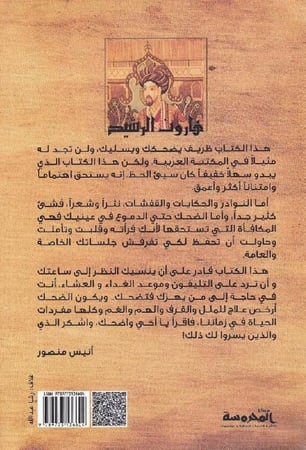 هارون الرشيد
هذا الكتاب ظريف يضحكك ويسليك، ولن تجد له
مثيلاً في المكتبة العربية. ولكن هذا الكتاب الذي
يبدو سهلاً خفيفاً كان سيئ الحظ. إنه يستحق اهتماماً
وامتناناً أكثر وأعمق.
أما النوادر والحكايات والقفشات، نثراً وشعراً، فشئ
كثير جداً، وأما الضحك حتى الدموع في عينيك فهي
المكافأة التي تستحقها لأنك قرأته وقلبت وتأملت
وحاولت أن تحفظ لكي تفرفش جلساتك الخاصة
والعامة.
هذا الكتاب قادر على أن ينسيك النظر إلى ساعتك
و أن ترد على التليفون وموعد الغداء و العشاء. أنت
في حاجة إلى من يهزك فتضحك. ويكون الضحك
أرخص علاج للملل والقرف والهم والغم وكلها مفردات
الحياة في زماننا، فاقرأ يا أخي واضحك، واشكر الذي
والذين يسروا لك ذلك!
أنيس منصور
غلاف: رشا عبدالله
المحروسة